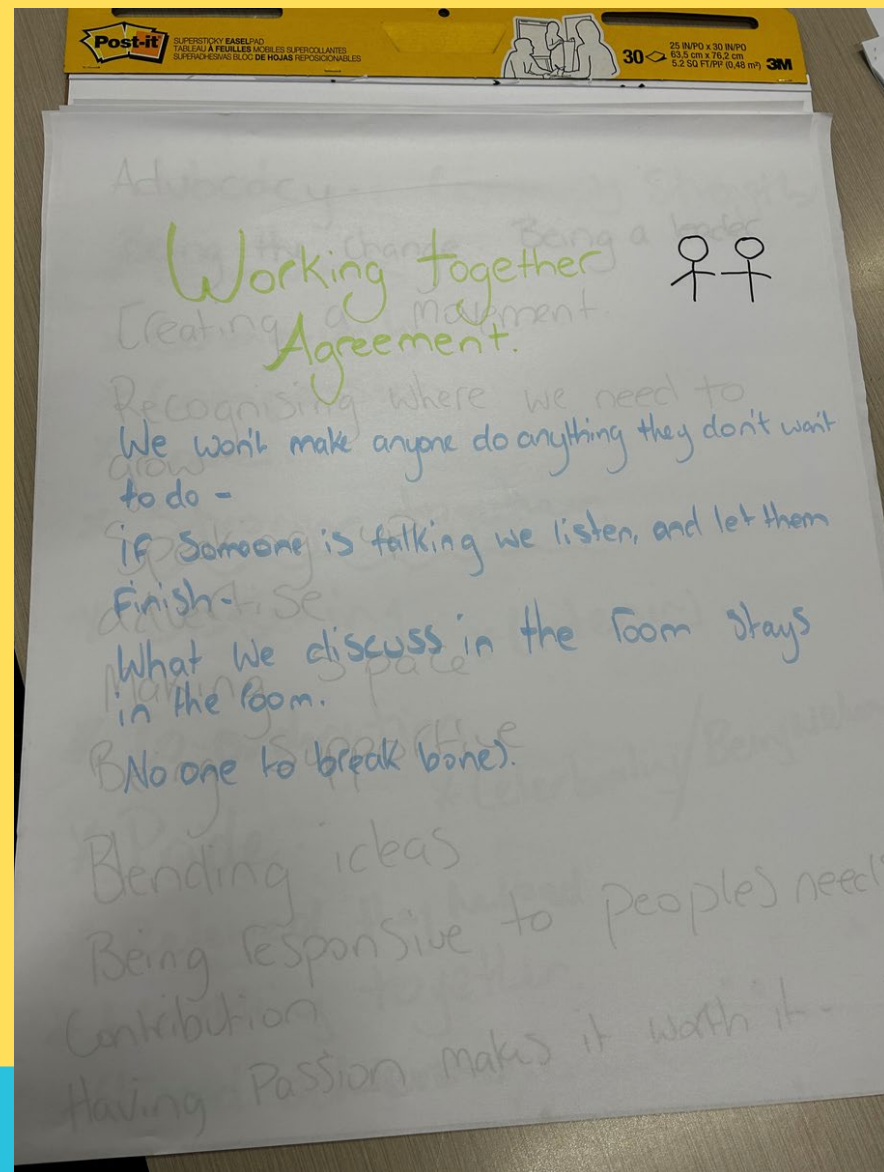 Post-it
SUPERSTICKY EASEL PAD
TABLEAU À FEUILLES MOBILES SUPERCOLLANTES
SUPERADHESIVAS BLOC DE HOJAS REPOSICIONABLES
30
25 IN/PO x 30 IN/PO
63,5 cm x 76,2 cm
5.2 SQ FT/PI² (0,48 m²)
3M
Advocacy
the change. Being a leader
Working together
Creating a movement.
Agreement.
Recognising where we need to
We won't make anyone do anything they don't want
grow
to do -
if someone is talking we listen, and let them
Finish-
advertise
What we discuss in the room stays
Making space
in the room.
No one to break bones.
Blending ideas
Being responsive to peoples need
Contribution
Having Passion makes it worth it.